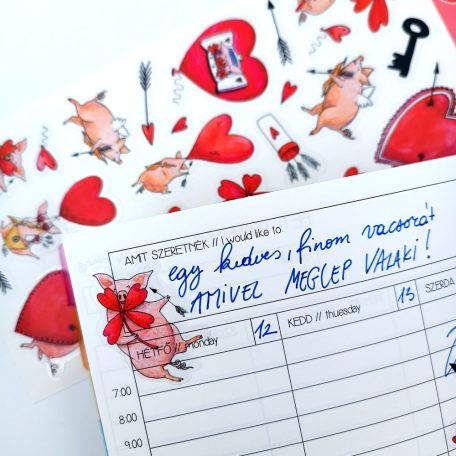 AMIT SZERETNÉK // I would like to:
egy kedves, finom vacsorát
AMIVEL MEGLEP VALAKI!
HÉTFŐ // monday 12
KEDD // thuesday 13
SZERDA
7:00
8:00
9:00